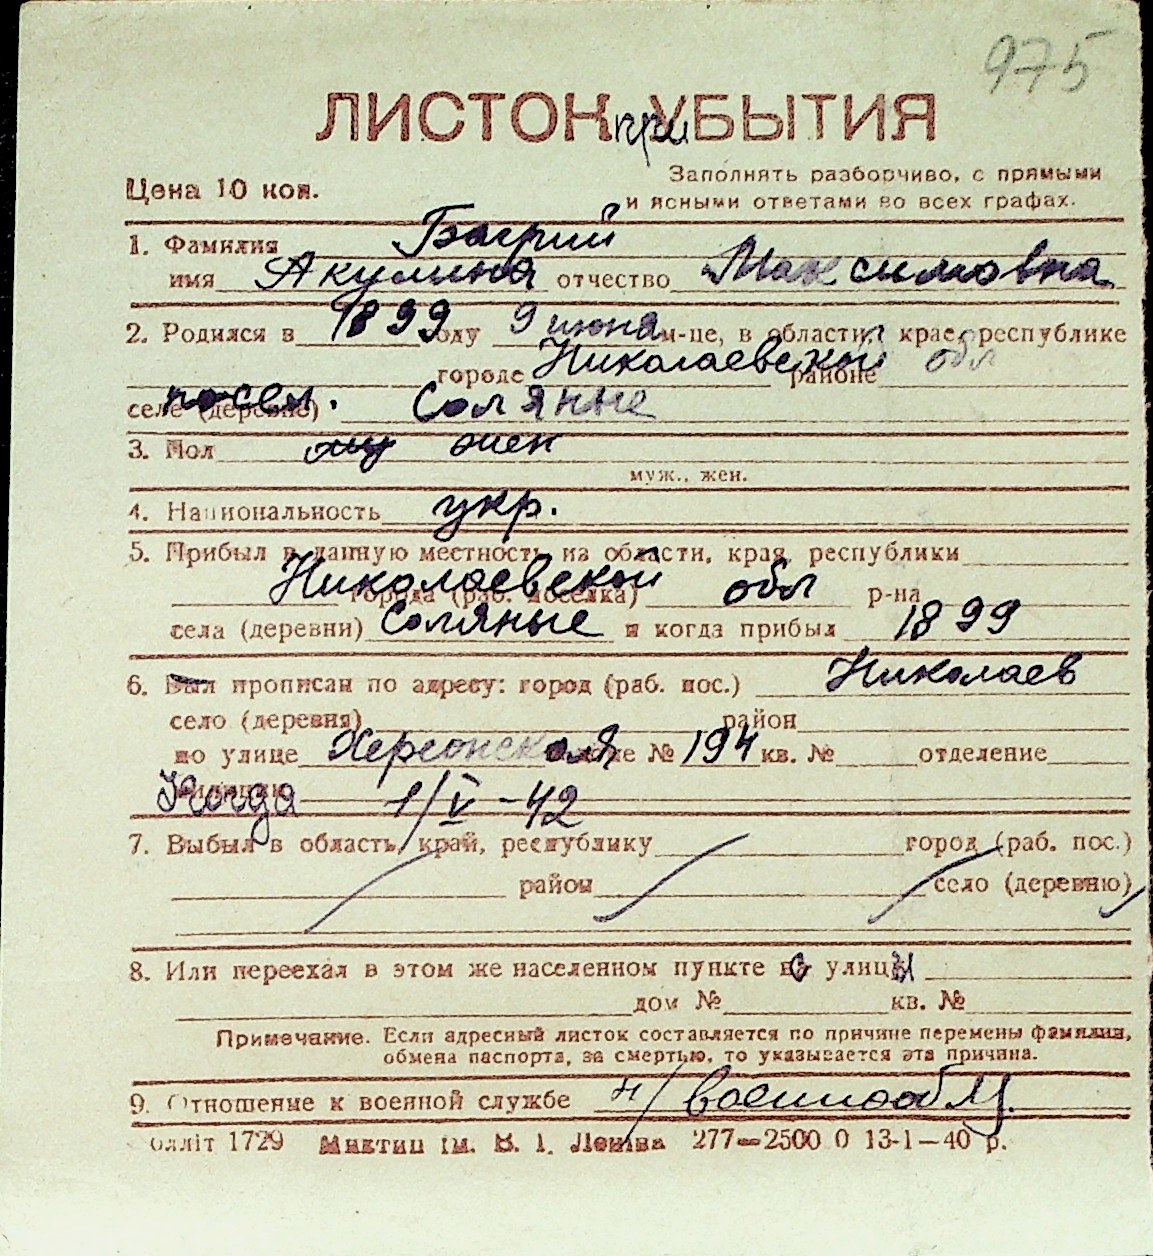 975
ЛИСТОК при УБЫТИЯ
Заполнять разборчиво, с прямыми
Цена 10 коп.
и ясными ответами во всех графах.
1. Фамилия Багрий
имя Акулина отчество Максимовна
2. Родился в 1899 году 9 июня м-це, в области, крае, республике
городе Николаевской районе обл
селе (деревне) посел. Соляные
3. Пол му жен
муж., жен.
4. Национальность укр.
5. Прибыл в данную местность из области, края, республики
Николаевской города (раб. поселка) обл р-на
села (деревни) Соляные и когда прибыл 1899
6. Был прописан по адресу: город (раб. пос.) Николаев
село (деревня) район
по улице Херсонская доме № 194 кв. № отделение
милиции Когда 1/V-42
7. Выбыл в область, край, республику город (раб. пос.)
район село (деревню)
8. Или переехал в этом же населенном пункте с улицы
дом № кв. №
Примечание. Если адресный листок составляется по причине перемены фамилии,
обмена паспорта, за смертью, то указывается эта причина.
9. Отношение к военной службе н/военнообяз.
блліт 1729 Миктип ім. В. І. Леніна 277—2500 0 13-1—40 р.